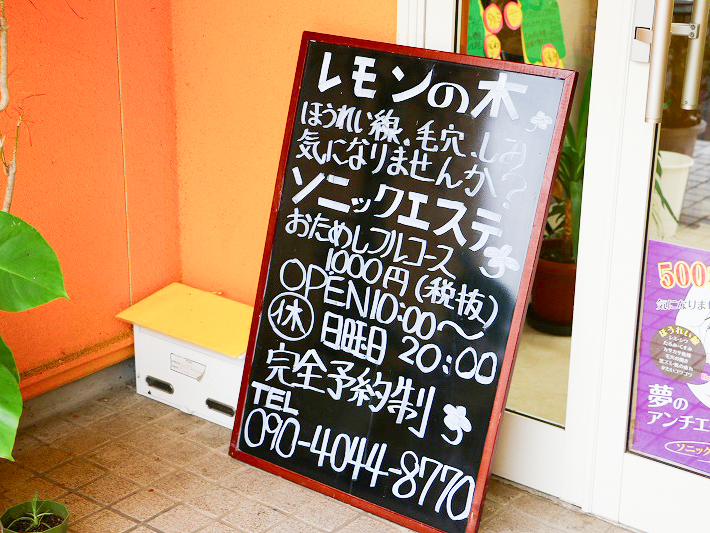 レモンの木
ほうれい線、毛穴、しみ
気になりませんか?
ソニックエステ
おためしフルコース
1000円(税抜)
OPEN10:00〜
20:00
㊡ 日曜日
完全予約制
TEL
090-4044-8770
500
気になりませ
ほうれい線
夢の
アンチエ
ソニック